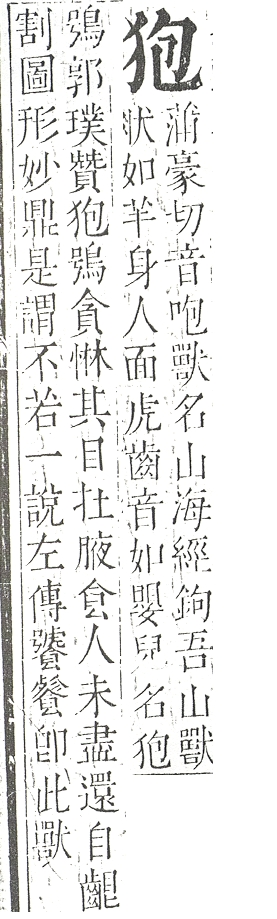 狍
蒲豪切音咆獸名山海經鉤吾山獸
狀如羊身人面虎齒音如嬰兒名狍
鴞郭璞贊狍鴞貪惏其目在腋食人未盡還自齦
割圖形妙鼎是謂不若一說左傳饕餮卽此獸